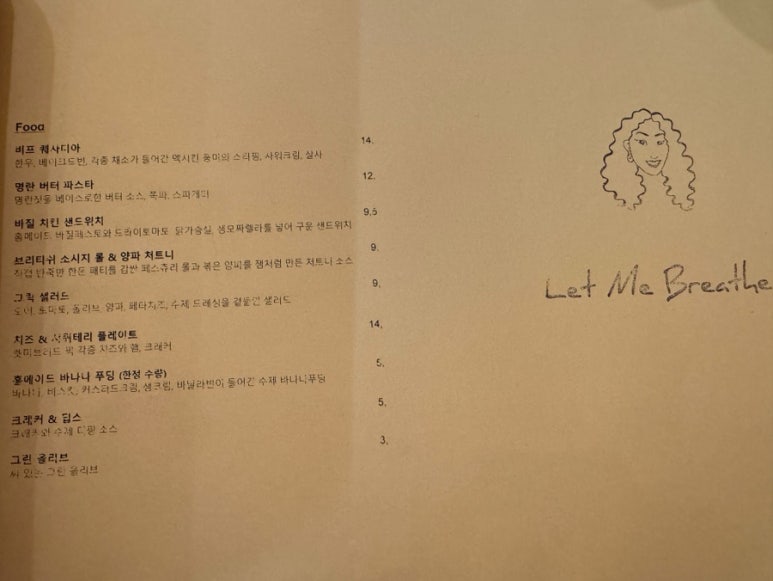 Food
비프 퀘사디아
14.
한우, 베이크드빈, 각종 채소가 들어간 멕시칸 풍미의 스터핑, 사워크림, 살사
명란 버터 파스타
12.
명란젓을 베이스로한 버터 소스, 쪽파, 스파게티
바질 치킨 샌드위치
9.5
홈메이드 바질페스토와 드라이토마토, 닭가슴살, 생모짜렐라를 넣어 구운 샌드위치
브리티쉬 소시지 롤 & 양파 처트니
9.
직접 반죽한 한돈 패티를 감싼 페스츄리 롤과 볶은 양파를 잼처럼 만든 처트니 소스
그릭 샐러드
9.
오이, 토마토, 올리브, 양파, 페타치즈, 수제 드레싱을 곁들인 샐러드
치즈 & 샤퀴테리 플레이트
14.
렛미브리드 픽 각종 치즈와 햄, 크래커
홈메이드 바나나 푸딩 (한정 수량)
5.
바나나, 비스킷, 커스타드크림, 생크림, 바닐라빈이 들어간 수제 바나나푸딩
크래커 & 딥스
5.
크래커와 수제 디핑 소스
그린 올리브
3.
씨 있는 그린 올리브
Let Me Breathe